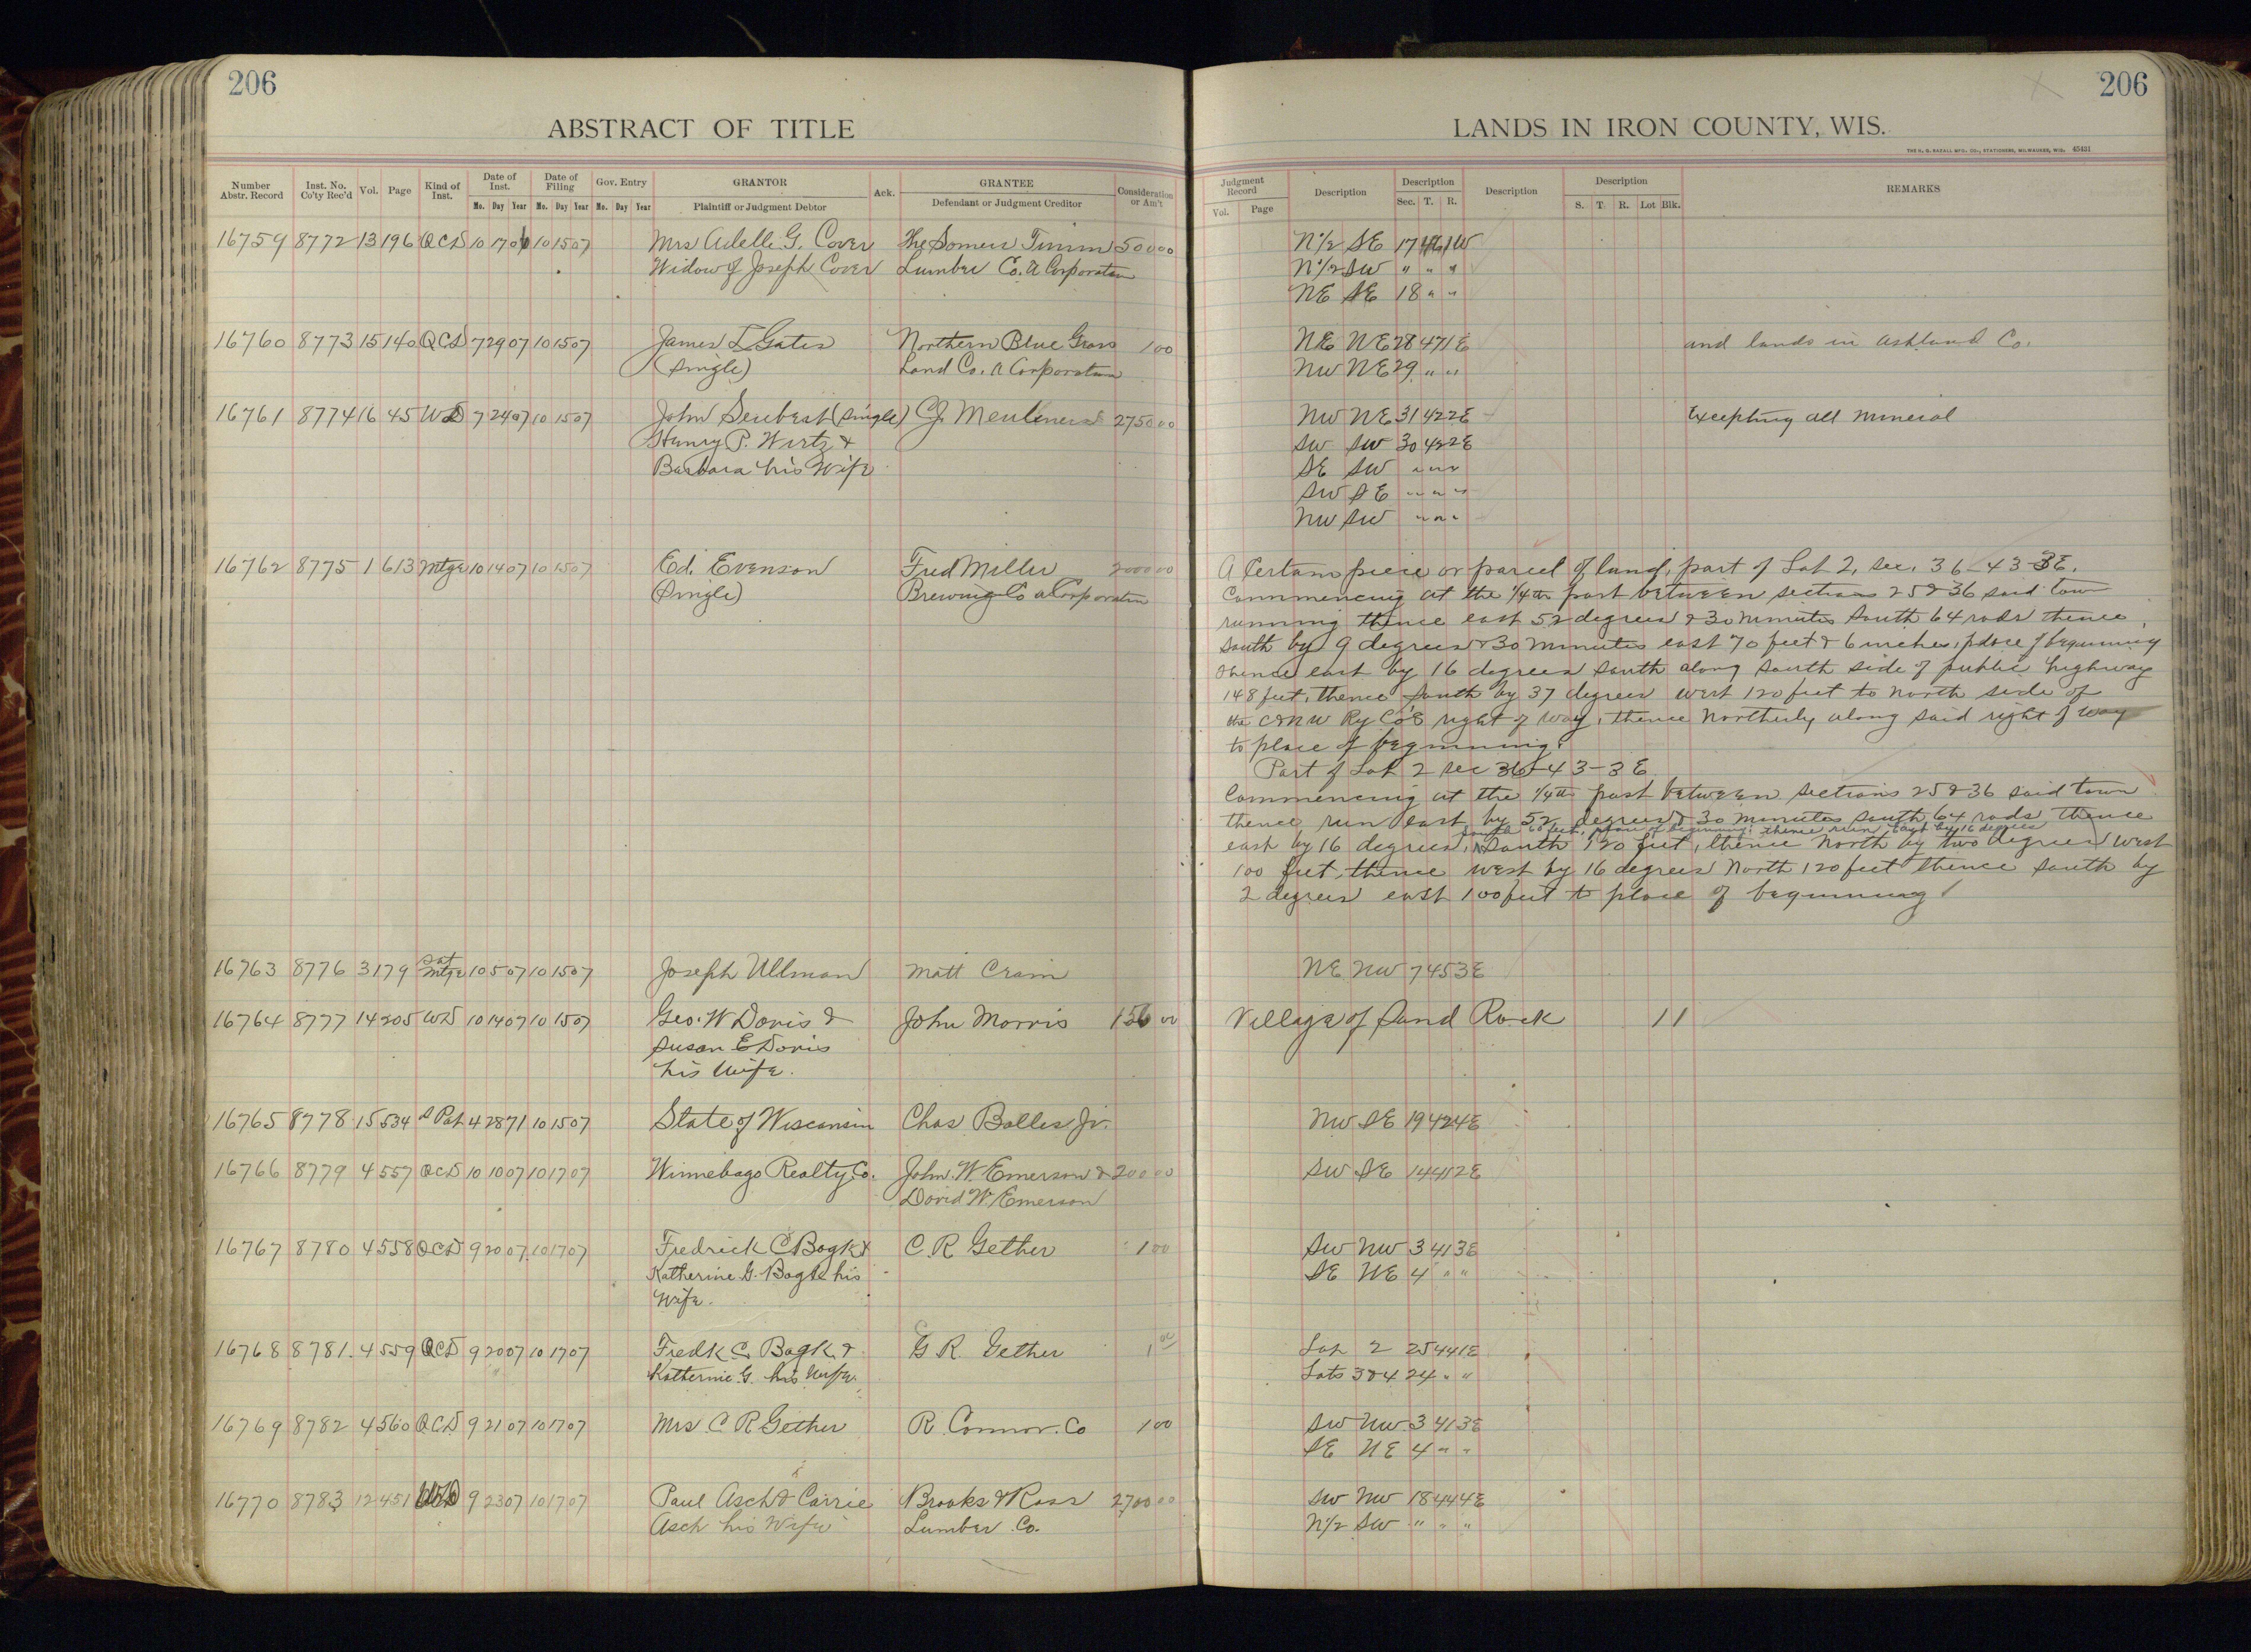 206
ABSTRACT OF TITLE
Number Abstr. Record Inst. No. Co'ty Rec'd Vol. Page Kind of Inst. Date of Inst. Date of Filing Gov. Entry GRANTOR Ack. GRANTEE Consideration or Am't
Mo. Day Year Mo. Day Year Mo. Day Year Plaintiff or Judgment Debtor Defendant or Judgment Creditor
16759 8772 13 196 QCD 10 17 06 10 15 07 Mrs Adelle G. Cover The Somers Timm 500 00
Widow of Joseph Cover Lumber Co. A Corporation
16760 8773 15 140 QCD 7 29 07 10 15 07 James L Gates Northern Blue Grass 1 00
(Single) Land Co. A Corporation
16761 8774 16 45 WD 7 24 07 10 15 07 John Seubert (Single) C.J. Meulemens 2750 00
Henry P. Wirtz &
Barbara his Wife
16762 8775 1 613 Mtge 10 14 07 10 15 07 Ed. Evenson Fred Miller 2000 00
(Single) Brewing Co a Corporation
16763 8776 3 179 Sat Mtge 10 5 07 10 15 07 Joseph Ullman Matt Crain
16764 8777 14 205 WD 10 14 07 10 15 07 Geo. W Doris & John Morris 00
Susan E Doris
his Wife.
16765 8778 15 534 S Pat 4 28 71 10 15 07 State of Wisconsin Chas Bolles Jr.
16766 8779 4 557 QCD 10 10 07 10 17 07 Winnebago Realty Co. John. W. Emerson & 200 00
David W. Emerson
16767 8780 4 558 QCD 9 20 07 10 17 07 Fredrick C Bogk & C. R Gether 1 00
Katherine G. Bogk his
Wife.
16768 8781. 4 559 QCD 9 20 07 10 17 07 Fredk C. Bogk & G R. Gether 1 00
Katherine G. his Wife.
16769 8782 4 560 QCD 9 21 07 10 17 07 Mrs. C. R Gether R. Connor. Co 1 00
16770 8783 12 451 WD 9 23 07 10 17 07 Paul Asch & Carrie Brooks & Ross 2700 00
Asch his Wife Lumber Co.
206
LANDS IN IRON COUNTY, WIS.
THE H. G. RAZALL MFG. CO., STATIONERS, MILWAUKEE, WIS. 45431
Judgment Record Description Description Description Description REMARKS
Vol. Page Sec. T. R. S. T. R. Lot Blk.
N 1/2 SE 17 46 1W
N 1/2 SW " " "
NE SE 18 " "
NE NE 28 47 1E and lands in Ashland Co.
NW NE 29 " "
NW NE 31 42 2E Excepting all Mineral
SW SW 30 42 2E
SE SW " " "
SW SE " " "
NW SW " " "
A Certain piece or parcel of land, part of Lot 2, Sec. 36-43-3E.
Commencing at the 1/4th post between sections 25 & 36 said town
running thence east 52 degrees & 30 minutes South 64 rods thence
south by 9 degrees & 30 minutes east 70 feet & 6 inches, place of beginning
thence east by 16 degrees South along south side of public highway
148 feet, thence South by 37 degrees west 120 feet to North side of
the C & N W Ry Co's right of way, thence Northerly along said right of way
to place of beginning.
Part of Lot 2 sec 36-43-3E.
Commencing at the 1/4th post between sections 25 & 36 said town
thence run east by 52 degrees & 30 minutes south 64 rods, thence
south 60 feet, place of beginning: thence run East by 16 degrees
east by 16 degrees, South 120 feet, thence North by two degrees West
100 feet, thence west by 16 degrees North 120 feet thence south by
2 degrees east 100 feet to place of beginning
NE NW 7 45 3E
Village of Sand Rock 11
NW SE 19 42 4E
SW SE 14 41 2E
SW NW 3 41 3E
SE NE 4 " "
Lot 2 25 44 1E
Lots 3 & 4 24 " "
SW NW 3 41 3E
SE NE 4 " "
SW NW 18 44 4E
N 1/2 SW " " "